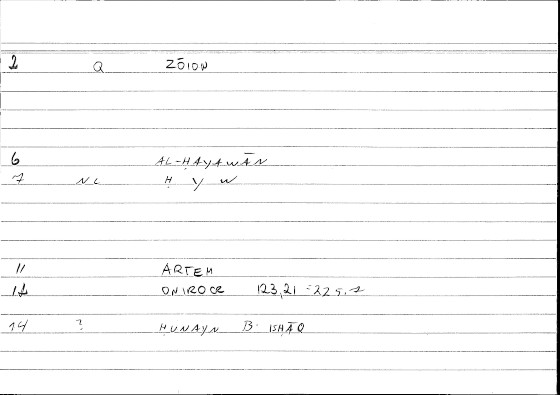 2 Q ZŌION
6 AL-ḤAYAWĀN
7 NC Ḥ Y W
11 ARTEM
12 ONIROCR 123,21 = 225.7
14 ? ḤUNAYN B. ISḤĀQ